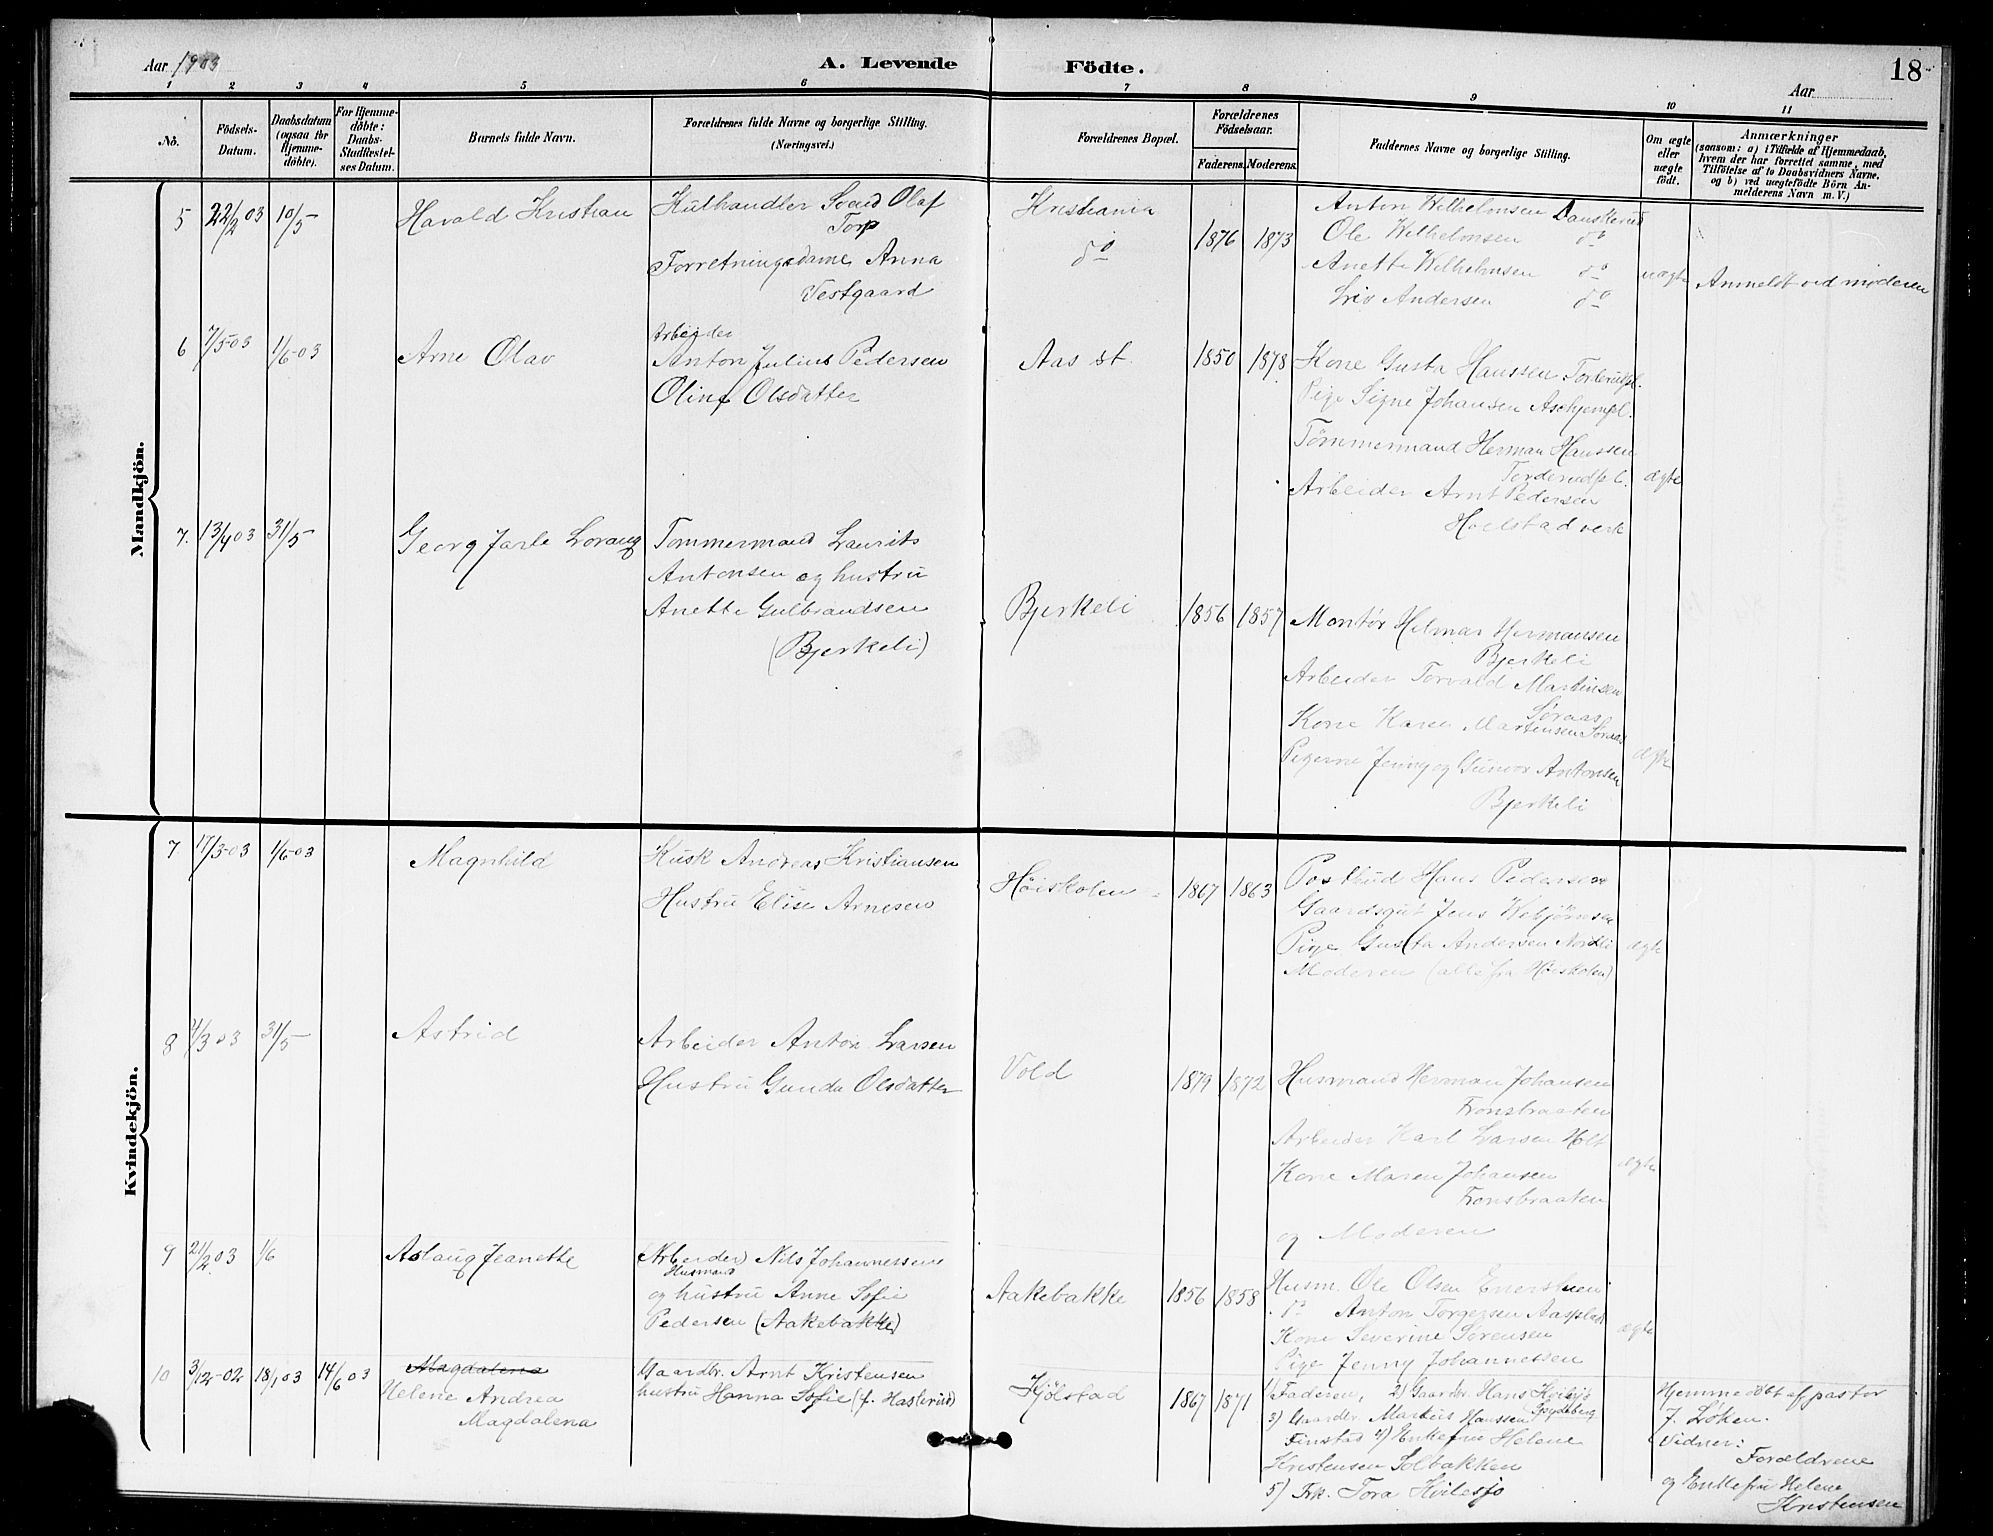 Aar 1903
A. Levende Födte.
Aar
18
1 2 3 4 5 6 7 8 9 10 11
No.
Födsels-Datum.
Daabsdatum (ogsaa for Hjemme-döbte).
For Hjemme-döbte: Daabs-Stadfæstel-ses Datum.
Barnets fulde Navn.
Forældrenes fulde Navne og borgerlige Stilling. (Næringsvei.)
Forældrenes Bopæl.
Forældrenes Födselsaar.
Faderens. Moderens.
Faddernes Navne og borgerlige Stilling.
Om ægte eller uægte födt.
Anmærkninger
(saasom: a) i Tilfælde af Hjemmedaab, hvem der har forrettet samme, med Tilföielse af to Daabsvidners Navne, og b) ved uægtefödte Börn An-melderens Navn m. V.)
Mandkjön.
5 22/2 03 10/5- Harald Kristian
Kulhandler Svend Olaf
Torp
Forretningsdame Anna
Vestgaard
Kristiania
do
1876 1873
Anton Wilhelmsen Danskerud
Ole Wilhelmsen do
Anette Wilhelmsen do
Andersen do
uægte
Anmeldt ved moderen
6 7/5-03 1/6-03 Arne Olav
Arbeider
Anton Julius Pedersen
Oline Olsdatter
Aas st.
1850 1878
Kone Gusta Hanssen
Pige Signe Johansen Askjempl.
Tømmermand Herman Hanssen
Torderudpl.
Arbeider Arnt Pedersen
verk
ægte
7. 13/4 03 31/5- Georg Jarle Lorang
Tømmermand Laurits
Antonsen og hustru
Anette Gulbrandsen
(Bjerkeli)
Bjerkeli
1856 1857
Montør Helmar Hermansen
Bjerkeli
Arbeider Torvald Martinsen
Søraas
Kone Karen Martinsen Søraas
Pigerne Jenny og Gunvor Antonsen
Bjerkeli
ægte
Kvindekjön.
7 17/3-03 1/6-03 Magnhild
Kusk Andreas Kristiansen
Hustru Elise Arnesen
Høiskolen
1867 1863
Postbud Hans Pedersen
Gaardsgut Jens
Pige Gusta Andersen Nordli
Moderen (alle fra Høiskolen)
ægte
8 4/3 03 31/5- Astrid
Arbeider Anton Larsen
Hustru Gunda Olsdatter
Vold
1879 1872
Husmand Herman Johansen
Fronsbraaten
Arbeider Karl Larsen Holt
Kone Maren Johansen
Fronsbraaten
og Moderen
ægte
9 21/2 03 1/6 Aslaug Jeanette
(Arbeider) Nils Johannessen
Husmand
og hustru Anne Sofie
Pedersen (Aakebakke)
Aakebakke
1856 1858
Husm. Ole Olsen Enerstuen
do Anton Torgersen Aasplads
Kone Severine Sørensen
Pige Jenny Johannessen
ægte
10 3/12-02 18/1 03 14/6 03 Magdalena
Helene Andrea
Magdalena
Gaardbr. Arnt Kristensen
hustru Hanna Sofie (f. Haslerud)
Kjølstad
1867 1871
1) Faderen, 2) Gaardbr. Hans Hvilesjø
Spydeberg
3) Gaardbr. Markus Hanssen
Finstad 4) Enkefru Helene
Kristensen Solbakken
5) Frk. Tora Hvilesjø
Hjemmedøbt af pastor
J. Løken.
Vidner:
Forældrene
og Enkefru Helene
Kristensen